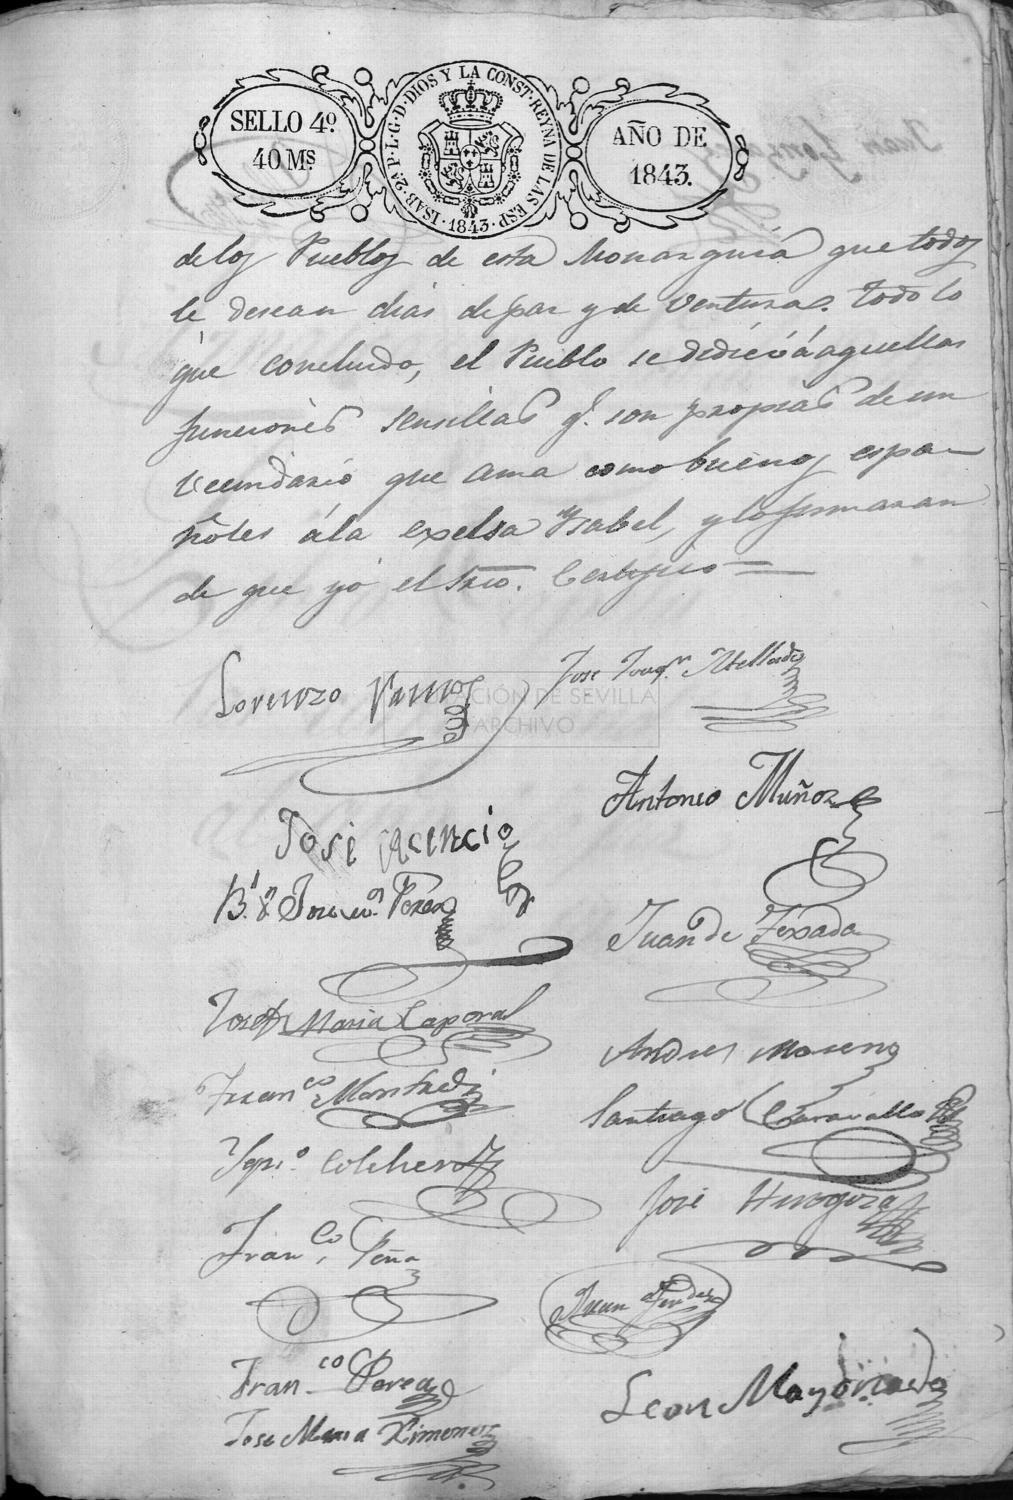 SELLO 4º.
40 Ms.
ISAB. 2ª P. L. G. D. DIOS Y LA CONST. REYNA DE LAS ESP.
· 1843 ·
AÑO DE
1843.
de los Pueblos de esta Monarquia que todos
le desean dias de paz y de Ventura. Todo lo
que concluido, el Pueblo se dedicó á aquellas
funciones sensillas q.e son propias de un
vecindario que ama como buenos espa-
ñoles á la exelsa Ysabel, y lo firmaran
de que yo el Srio. Certifico =
Lorenzo Ramos
Jose Joaq.n Mellado
DIPUTACIÓN DE SEVILLA
ARCHIVO
Antonio Muñoz
José Acencio
Perez
Juan de Texada
Josef Maria Caporal
Andres Moreno
Juan
Santiago Caravallo
Ygn.o
José
Fran.co Peña
Juan Fernandez
Fran.co Perea
Leon Mayorado
Jose Maria Ximenez